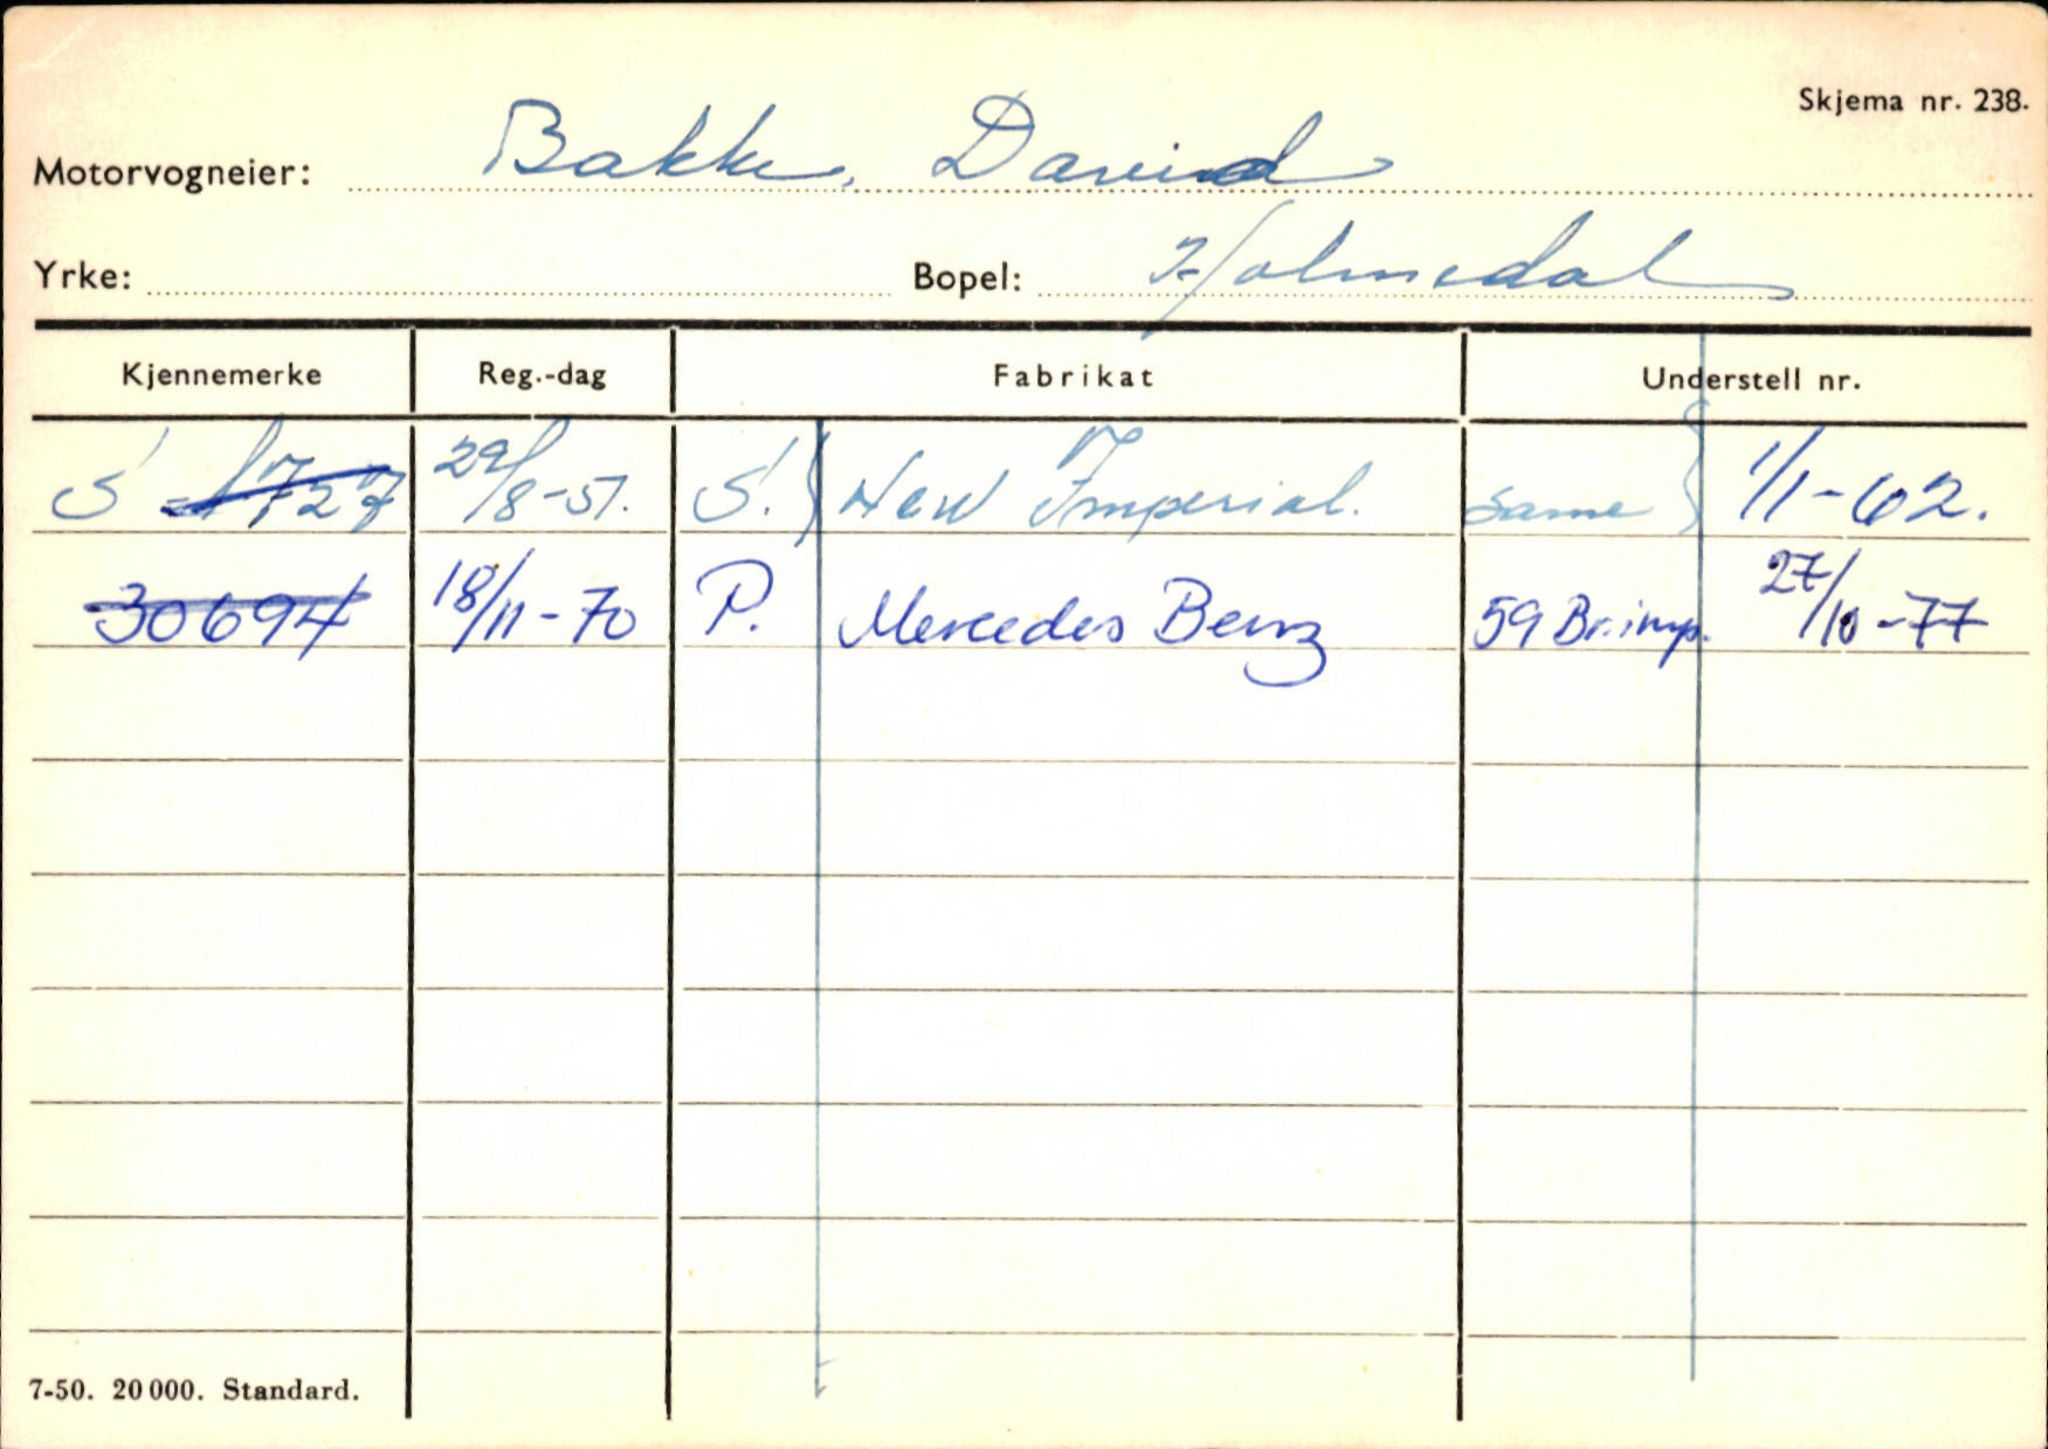 Skjema nr. 238.
Motorvogneier: Bakke, David
Yrke: Bopel: Holmedal
Kjennemerke Reg.-dag Fabrikat Understell nr.
S - 1727 29/8-51. S. New Imperial. same 1/1-62.
30694 18/11-70 P. Mercedes Benz 59 Br.imp. 27/10-77
7-50. 20 000. Standard.